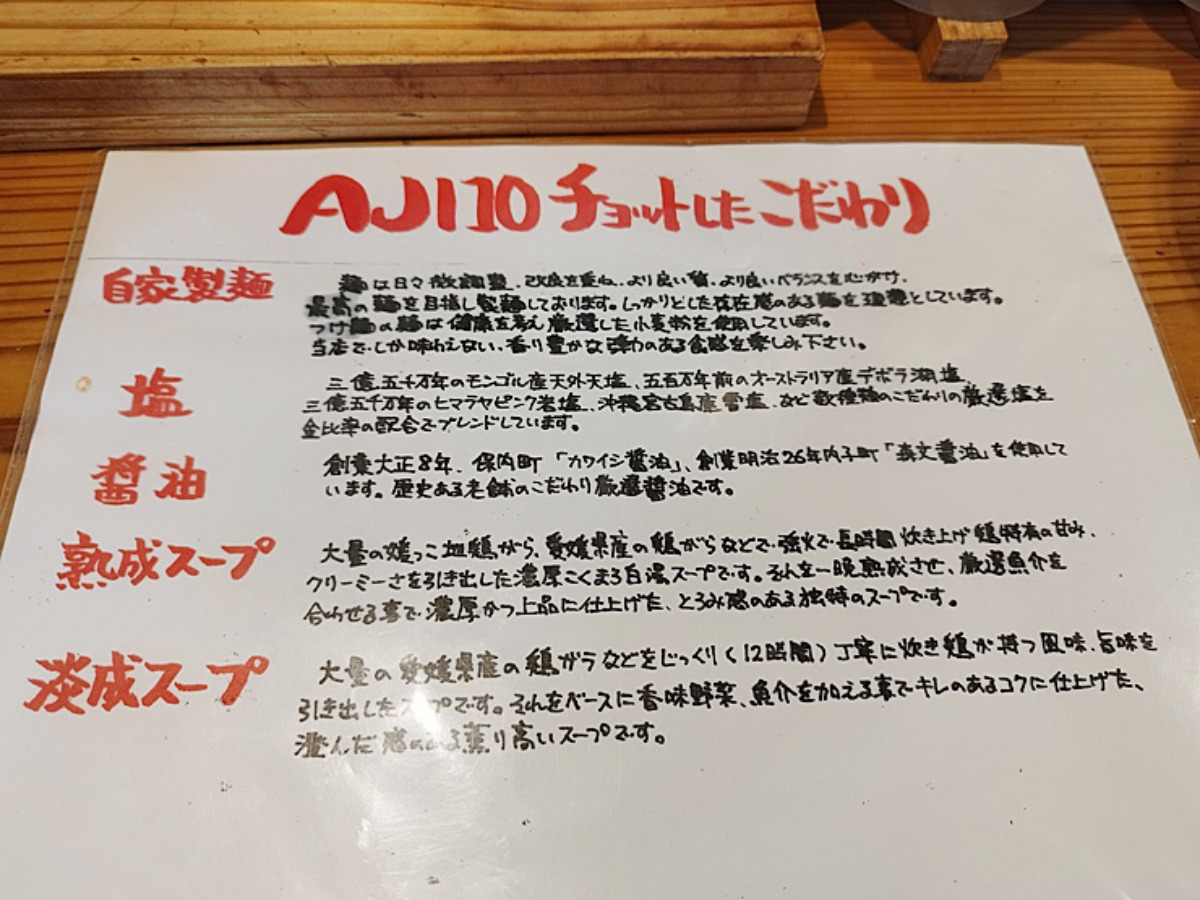 AJI10 チョットしたこだわり
自家製麺
麺は日々微調整、改良を重ね、より良い質、より良いバランスを心がけ、
最高の麺を目指し製麺しております。しっかりとした存在感のある麺を理想としています。
つけ麺の麺は健康を考え厳選した小麦粉を使用しています。
当店でしか味わえない、香り豊かな弾力のある食感を楽しみ下さい。
塩
三億五千万年のモンゴル産天外天塩、五百万年前のオーストラリア産デボラ湖塩、
三億五千万年のヒマラヤピンク岩塩、沖縄宮古島産雪塩、など数種類のこだわりの厳選塩を
金比率の配合でブレンドしています。
醤油
創業大正8年、保内町「カワイシ醤油」、創業明治26年内子町「森文醤油」を使用して
います。歴史ある老舗のこだわり厳選醤油です。
熟成スープ
大量の媛っこ地鶏がら、愛媛県産の鶏がらなどで強火で長時間炊き上げ鶏特有の甘み、
クリーミーさを引き出した濃厚こくまろ白湯スープです。それを一晩熟成させ、厳選魚介を
合わせる事で濃厚かつ上品に仕上げた、とろみ感のある独特のスープです。
淡成スープ
大量の愛媛県産の鶏ガラなどをじっくり(12時間)丁寧に炊き鶏が持つ風味、旨味を
引き出したスープです。それをベースに香味野菜、魚介を加える事でキレのあるコクに仕上げた、
澄んだ感のある薫り高いスープです。